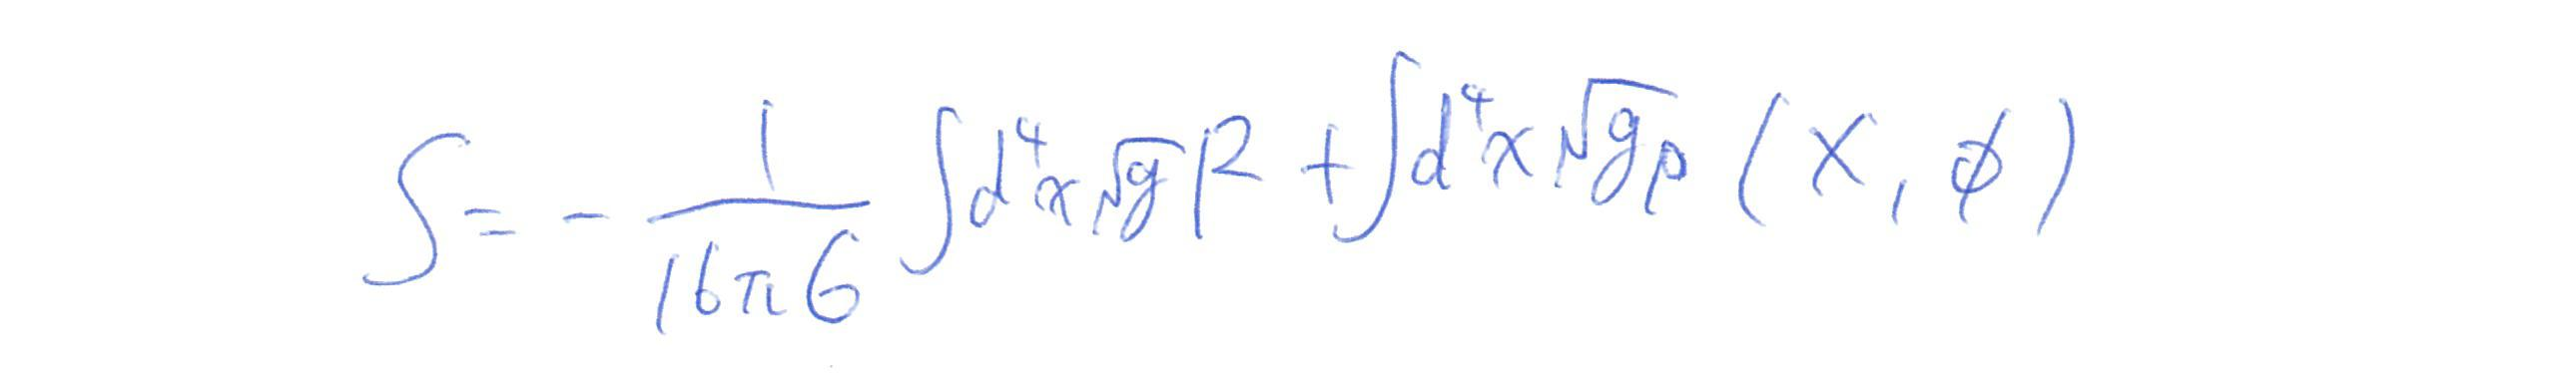 S = - \frac{1}{16\pi G} \int d^4x \sqrt{g} R + \int d^4x \sqrt{g} p(X, \phi)